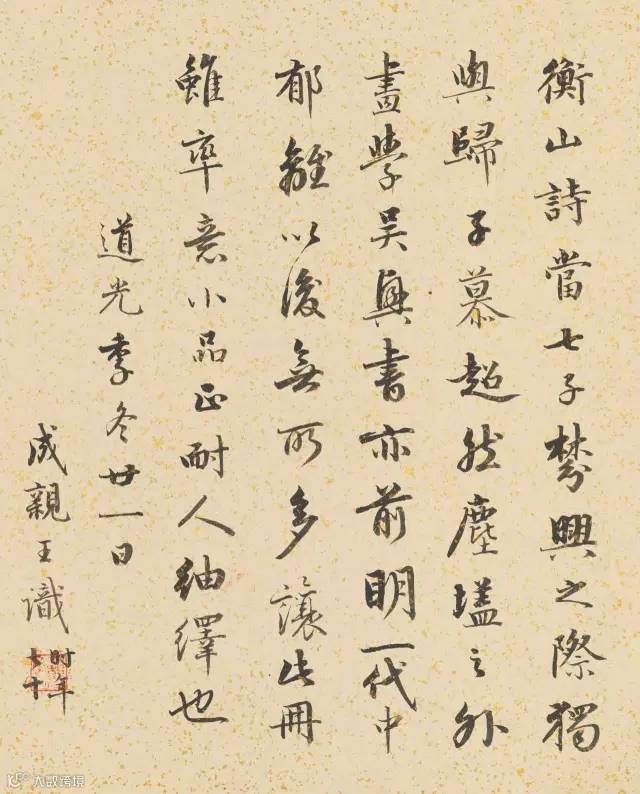 衡山詩當七子棼興之際獨
與歸子慕超然塵壒之外
畫學吳興書亦前明一代中
郁離以後無所多讓此冊
雖率意小品正耐人紬繹也
道光季冬廿一日
成親王識
时年
七十
大数跨境